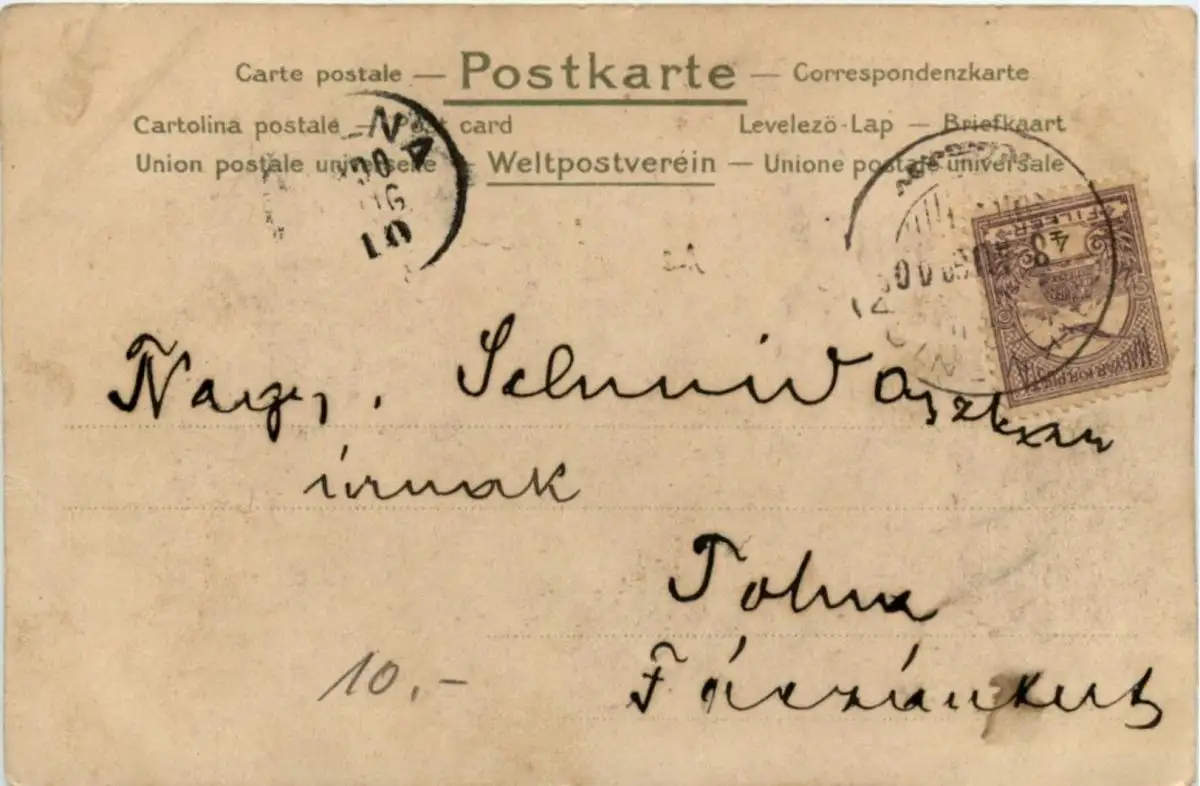 Carte postale — Postkarte — Correspondenzkarte
Cartolina postale — Post card Levelező-Lap — Briefkaart
Union postale universelle — Weltpostverein — Unione postale universale
NA
10
FILLER
MAGYAR KIR. POSTA
Nagy. Schmid Oszkar
úrnak
Tolna
Fáczánkert
10.-